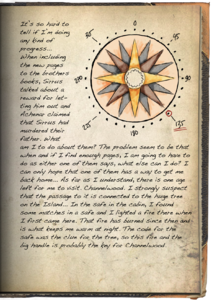 It's so hard to
tell if I'm doing
any kind of
progress...
When including
the new pages
to the brothers
books, Sirrus
talked about a
reward for let-
ting him out and
Achenar claimed
that Sirrus had
murdered their
father. What
am I to do about them? The problem seem to be that
when and if I find enough pages, I am going to have to
do as either one of them says, what else can I do? I
can only hope that one of them has a way to get me
back home... As far as I understand, there is one age
left for me to visit. Channelwood. I strongly suspect
that the passage to it is connected to the huge tree
on the Island... In the safe in the cabin, I found
some matches in a safe and I lighted a fire there when
I first came here. That fire has burned since then and
is what keeps me warm at night. The code for the
safe was the clue for the tree, so this fire and the
big handle is probably the key for Channelwood.
0
45
90
135
225
270
135